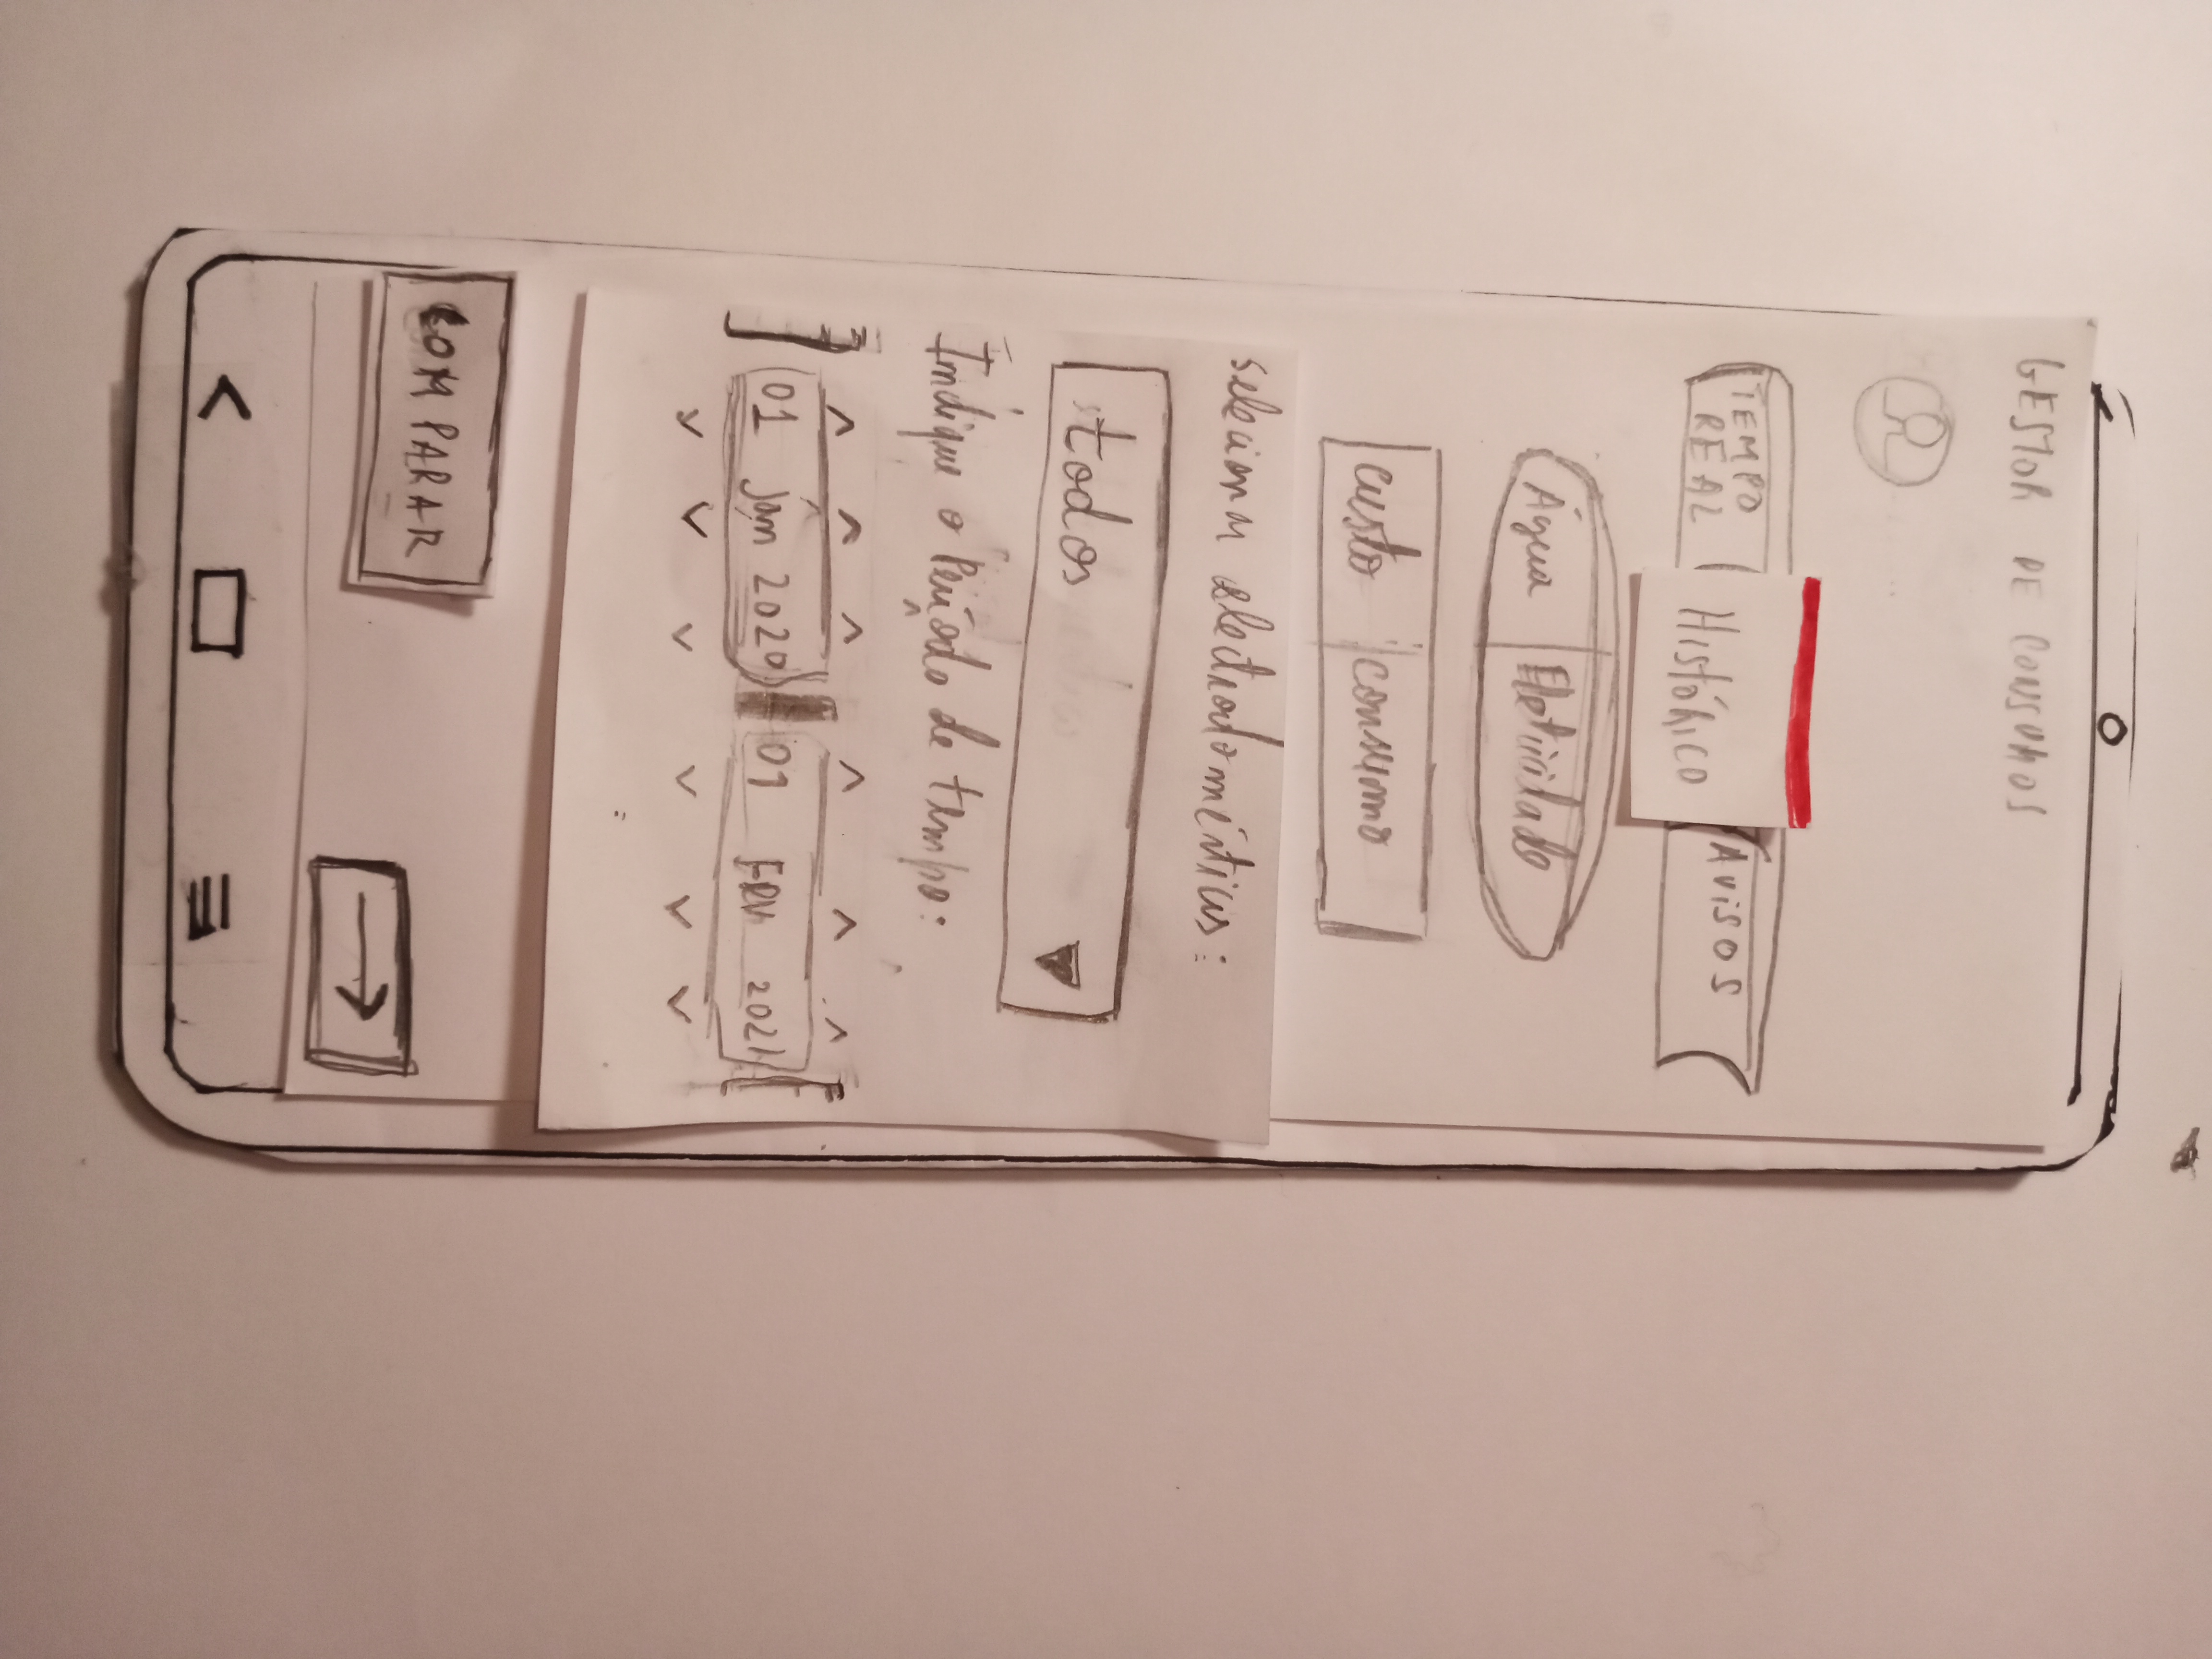 GESTOR DE CONSUMOS
TEMPO REAL
Histórico
AVISOS
Água
Eletricidade
custo
consumo
selecionar eletrodomésticos:
todos
Indique o Período de tempo:
01 Jan 2020
01 FEV 2021
COMPARAR